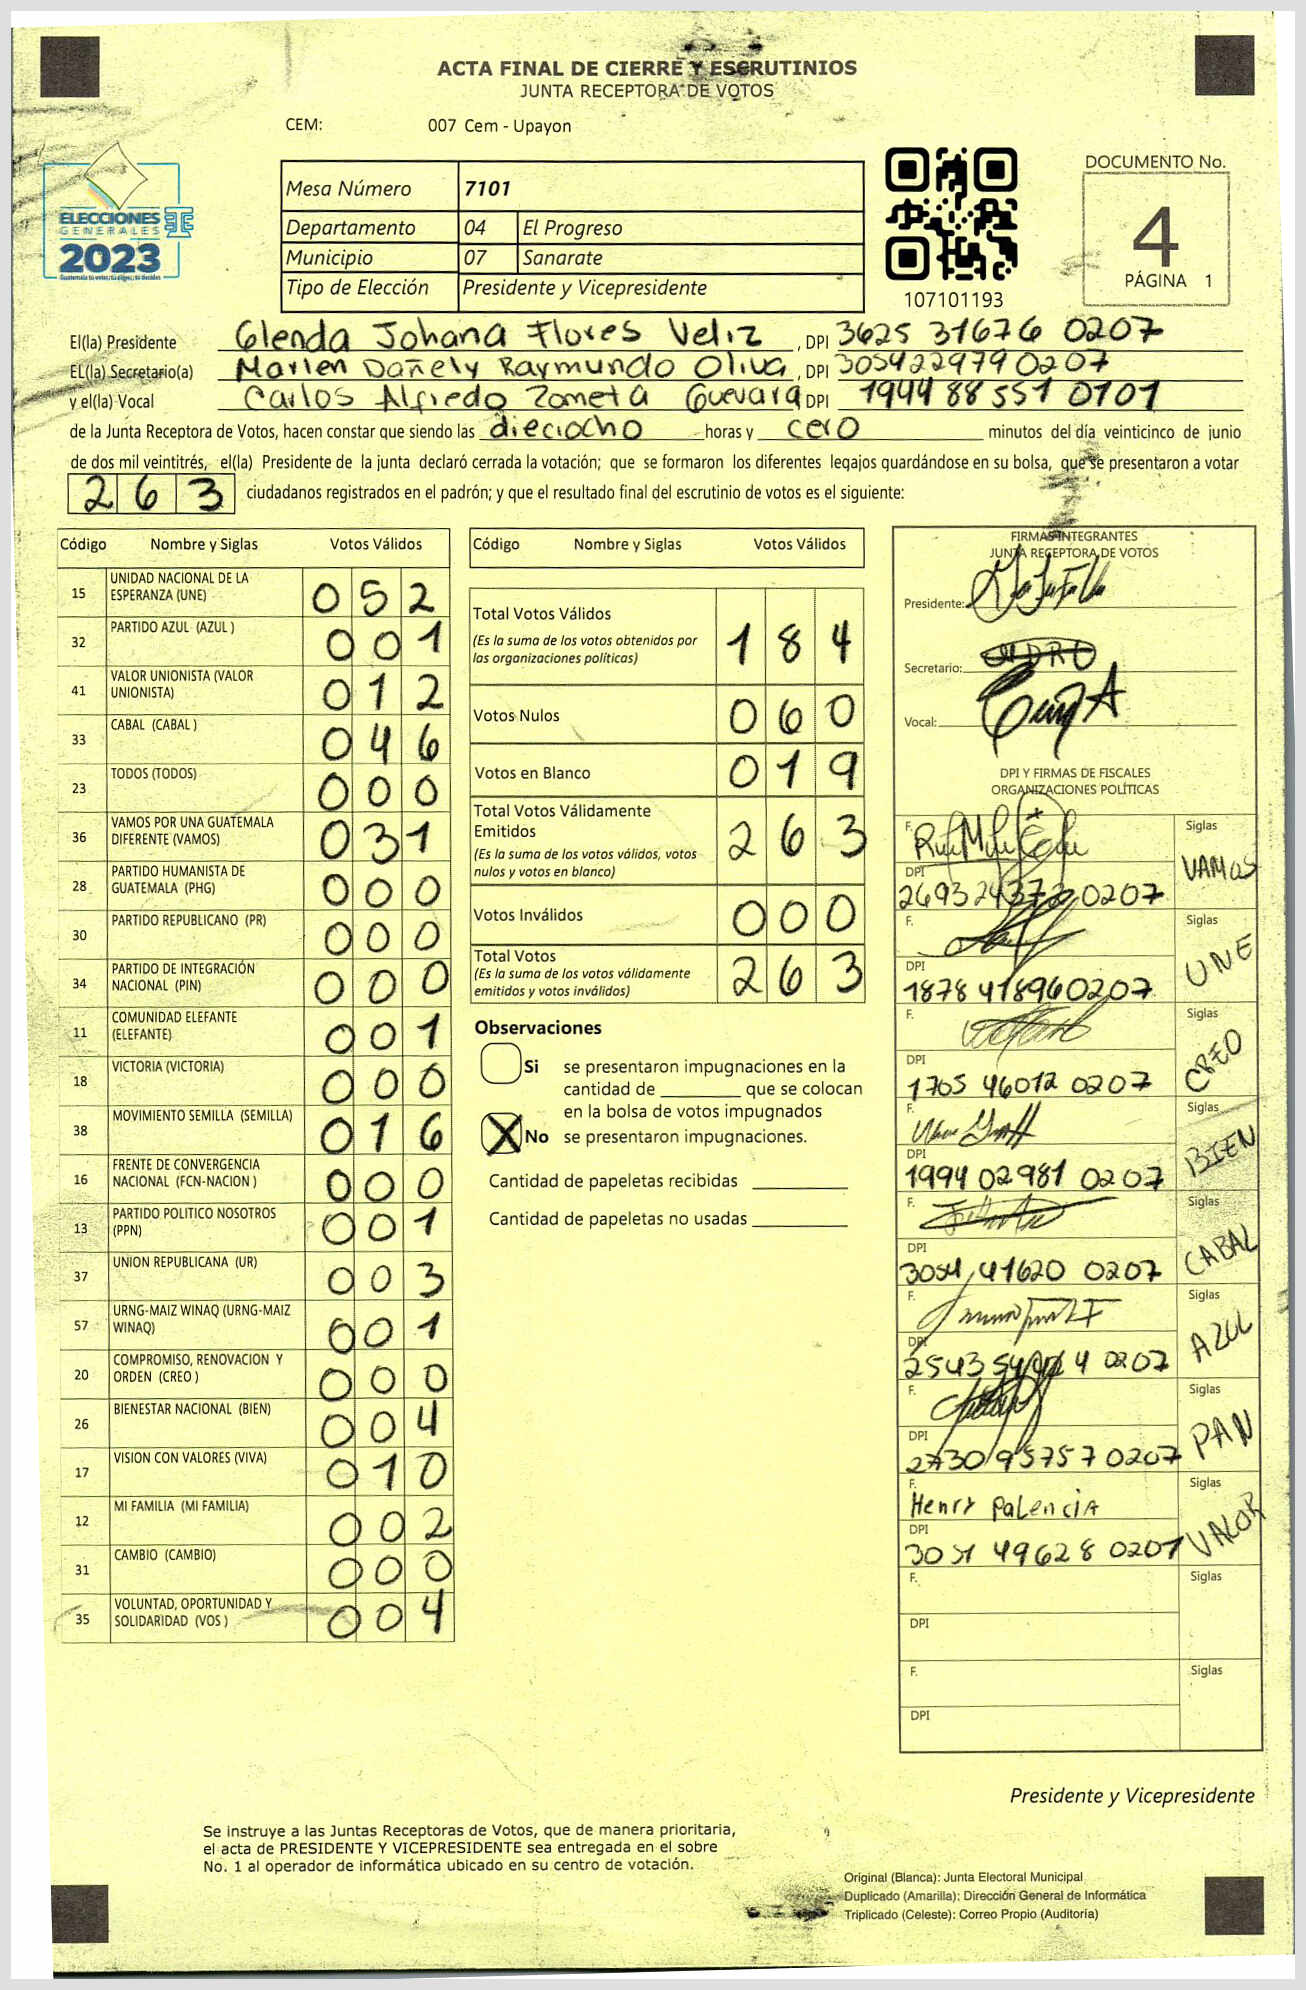 ACTA FINAL DE CIERRE Y ESCRUTINIOS
JUNTA RECEPTORA DE VOTOS
CEM: 007 Cem - Upayon
ELECCIONES
GENERALES
2023
Guatemala tú votas, tú eliges, tú decides
Mesa Número 7101
Departamento 04 El Progreso
Municipio 07 Sanarate
Tipo de Elección Presidente y Vicepresidente
107101193
DOCUMENTO No.
4
PÁGINA 1
El(la) Presidente Glenda Johana Flores Veliz, DPI 3625 31676 0207
EL(la) Secretario(a) Marlen Dañely Raymundo Oliva, DPI 3054229790207
y el(la) Vocal Carlos Alfredo Zometa Guevara DPI 1944 88 551 0101
de la Junta Receptora de Votos, hacen constar que siendo las dieciocho horas y cero minutos del día veinticinco de junio
de dos mil veintitrés, el(la) Presidente de la junta declaró cerrada la votación; que se formaron los diferentes legajos guardándose en su bolsa, que se presentaron a votar
263 ciudadanos registrados en el padrón; y que el resultado final del escrutinio de votos es el siguiente:
Código Nombre y Siglas Votos Válidos
15 UNIDAD NACIONAL DE LA ESPERANZA (UNE) 052
32 PARTIDO AZUL (AZUL ) 001
41 VALOR UNIONISTA (VALOR UNIONISTA) 012
33 CABAL (CABAL ) 046
23 TODOS (TODOS) 000
36 VAMOS POR UNA GUATEMALA DIFERENTE (VAMOS) 031
28 PARTIDO HUMANISTA DE GUATEMALA (PHG) 000
30 PARTIDO REPUBLICANO (PR) 000
34 PARTIDO DE INTEGRACIÓN NACIONAL (PIN) 000
11 COMUNIDAD ELEFANTE (ELEFANTE) 001
18 VICTORIA (VICTORIA) 000
38 MOVIMIENTO SEMILLA (SEMILLA) 016
16 FRENTE DE CONVERGENCIA NACIONAL (FCN-NACION ) 000
13 PARTIDO POLITICO NOSOTROS (PPN) 001
37 UNION REPUBLICANA (UR) 003
57 URNG-MAIZ WINAQ (URNG-MAIZ WINAQ) 001
20 COMPROMISO, RENOVACION Y ORDEN (CREO ) 000
26 BIENESTAR NACIONAL (BIEN) 004
17 VISION CON VALORES (VIVA) 010
12 MI FAMILIA (MI FAMILIA) 002
31 CAMBIO (CAMBIO) 000
35 VOLUNTAD, OPORTUNIDAD Y SOLIDARIDAD (VOS ) 004
Código Nombre y Siglas Votos Válidos
Total Votos Válidos 184
(Es la suma de los votos obtenidos por
las organizaciones políticas)
Votos Nulos 060
Votos en Blanco 019
Total Votos Válidamente
Emitidos 263
(Es la suma de los votos válidos, votos
nulos y votos en blanco)
Votos Inválidos 000
Total Votos 263
(Es la suma de los votos válidamente
emitidos y votos inválidos)
Observaciones
Si se presentaron impugnaciones en la
cantidad de ________ que se colocan
en la bolsa de votos impugnados
X No se presentaron impugnaciones.
Cantidad de papeletas recibidas ________
Cantidad de papeletas no usadas ________
FIRMAS INTEGRANTES
JUNTA RECEPTORA DE VOTOS
Presidente:
Secretario:
Vocal:
DPI Y FIRMAS DE FISCALES
ORGANIZACIONES POLÍTICAS
F. Siglas VAMOS
DPI 0207
F. Siglas UNE
DPI 1878 418960207
F. Siglas CREO
DPI 1705 46012 0207
F. Siglas BIEN
DPI 1994 02981 0207
F. Siglas CABAL
DPI 41620 0207
F. Siglas AZUL
DPI 0207
F. Siglas PAN
DPI 0207
F. Henry Palencia Siglas VALOR
DPI 49628 0207
F. Siglas
DPI
F. Siglas
DPI
Presidente y Vicepresidente
Se instruye a las Juntas Receptoras de Votos, que de manera prioritaria,
el acta de PRESIDENTE Y VICEPRESIDENTE sea entregada en el sobre
No. 1 al operador de informática ubicado en su centro de votación.
Original (Blanca): Junta Electoral Municipal
Duplicado (Amarilla): Dirección General de Informática
Triplicado (Celeste): Correo Propio (Auditoría)